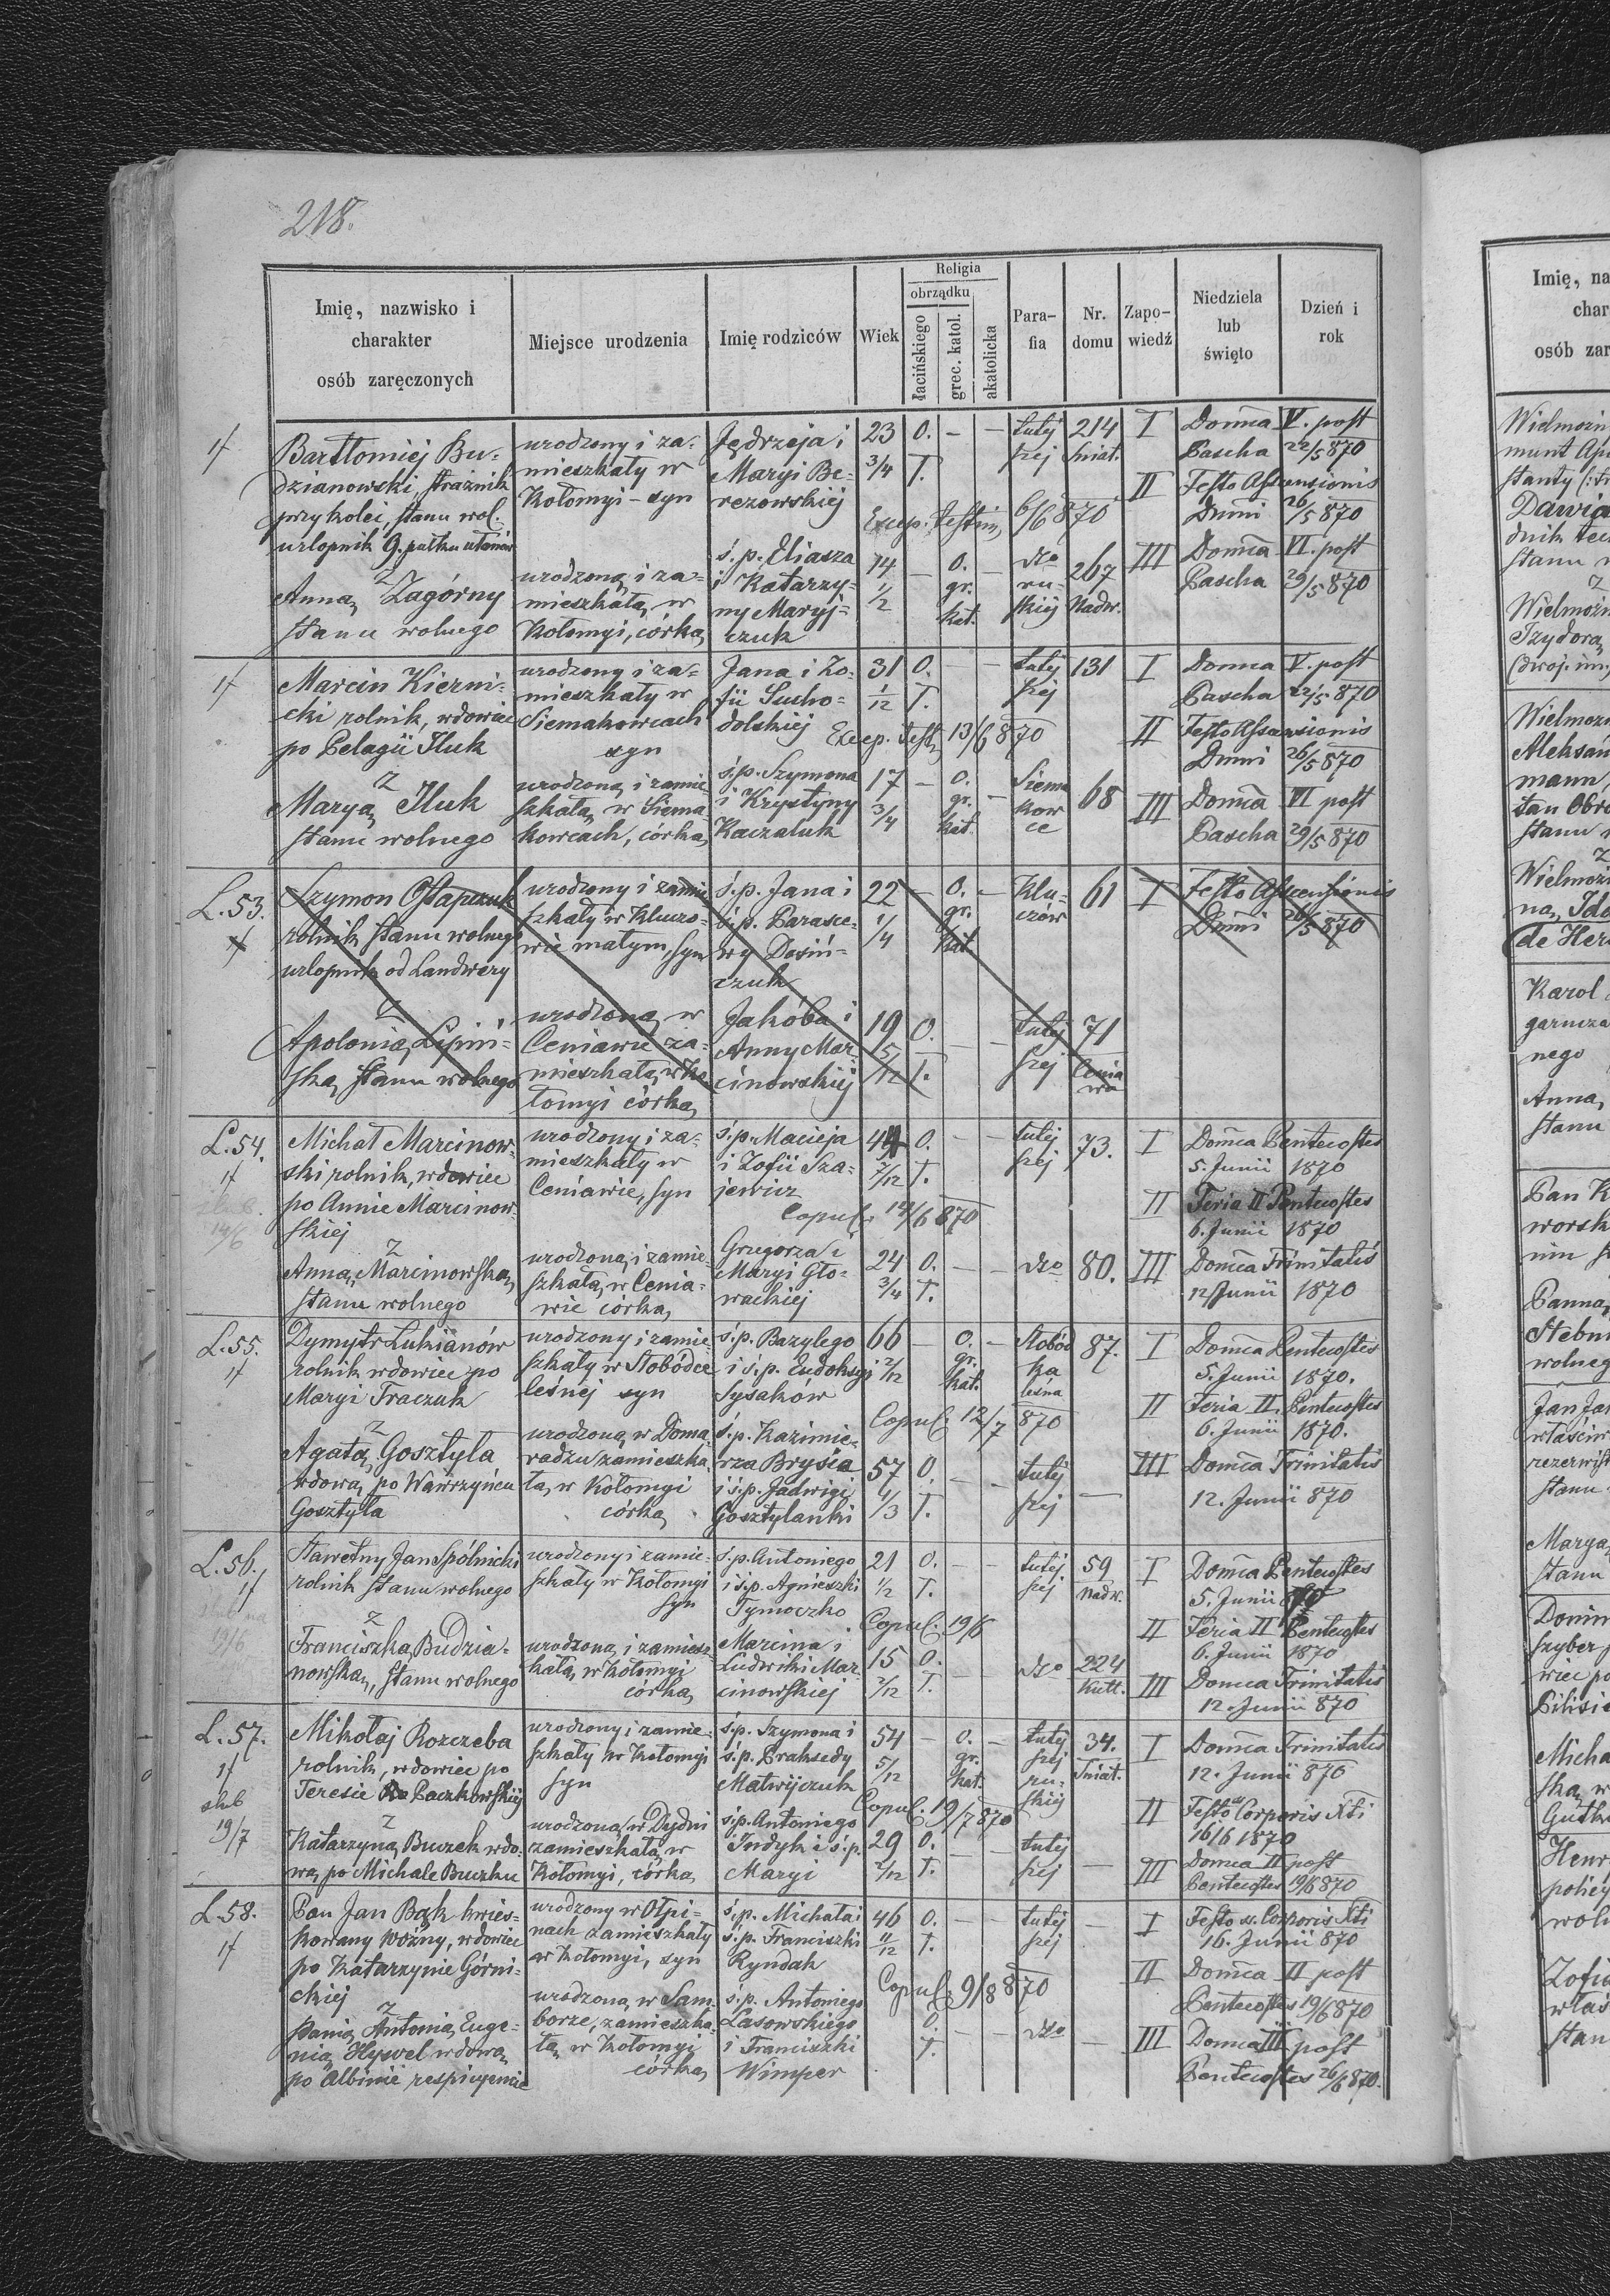 218.
Imię, nazwisko i
charakter
osób zaręczonych
Miejsce urodzenia
Imię rodziców
Wiek
Religia
obrządku
łacińskiego
grec. katol.
akatolicka
Para-
fia
Nr.
domu
Zapo-
wiedź
Niedziela
lub
święto
Dzień i
rok
Bartłomiej Bu-
dzianowski, strażnik
przy kolei, stanu wol.
urlopnik 9. pułku ułanów
urodzony i za-
mieszkały w
Kołomyi - syn
Jędrzeja i
Maryi Be-
rezowskiej
23
3/4
O.
T.
tutej
szej
214
Sniat.
I Domca V. post
Pascha 22/5 870
II Festo Ascensionis
Dmni 26/5 870
Excep. testim. 6/6 870
z
Anną Zagórny
stanu wolnego
urodzoną i za-
mieszkałą w
Kołomyi, córką
ś. p. Eliasza
i Katarzy-
ny Maryj-
czuk
14
1/2
o.
gr.
kat.
dto
ru-
skiej
267
Nadw.
III Domca VI. post
Pascha 29/5 870
Marcin Kierni-
cki rolnik, wdowiec
po Pelagii Iluk
urodzony i za-
mieszkały w
Siemakowcach
syn
Jana i Zo-
fii Sucho-
dolskiej
31
1/12
O.
T.
tutej
szej
131
I Domca V. post
Pascha 22/5 870
Excep. test. 13/6 870
II Festo Ascensionis
Dmni 26/5 870
z
Maryą Iluk
stanu wolnego
urodzoną i zamie-
szkałą w Siema
kowcach, córką
ś. p. Szymona
i Krystyny
Kaczaluk
17
3/4
o.
gr.
kat.
Siema
kow
ce
68
III Domca VI post
Pascha 29/5 870
L. 53.
Szymon Ostapczuk
rolnik stanu wolnego
urlopnik od Landwery
urodzony i zamie
szkały w Kluczo-
wie małym, syn
ś. p. Jana i
ś. p. Parasce-
wy Dosiń-
czuk
22
1/4
o.
gr.
kat.
Klu-
czów
61
I Festo Ascensionis
Dmni 26/5 870
z
Apolonią Lipiń-
ską, stanu wolnego
urodzoną w
Ceniawie za-
mieszkałą w Ko
łomyi córką
Jakóba i
Anny Mar
cinowskiej
19
5/12
O.
T.
tutej
szej
71
Cenia
wa
L. 54.
14/6
Michał Marcinow-
ski rolnik, wdowiec
po Annie Marcinow-
skiej
urodzony i za-
mieszkały w
Ceniawie, syn
ś. p. Macieja
i Zofii Sza-
jewicz
44
7/12
O.
T.
tutej
szej
73.
I Domca Pentecostes
5. Junii 1870
Copul. 14/6 870
II Feria II Pentecostes
6. Junii 1870
z
Anną Marcinowską
stanu wolnego
urodzoną i zamie-
szkałą w Cenia-
wie córką
Grzegorza i
Maryi Gło-
wackiej
24
3/4
O.
T.
dto
80.
III Domca Trinitatis
12 Junii 1870
L. 55.
Dymytr Lukianów
rolnik wdowiec po
Maryi Traczuk
urodzony i zamie-
szkały w Słobódce
leśnej syn
ś. p. Bazylego
i ś. p. Eudoksyi
Sysaków
66
2/12
o.
gr.
kat.
Słobód
ka
leśna
87.
I Domca Pentecostes
5. Junii 1870.
Copul. 12/7 870
II Feria II. Pentecostes
6. Junii 1870.
z
Agatą Gosztyla
wdową po Wawrzyńcu
Gosztyla
urodzoną w Doma-
radzu zamieszka-
łą w Kołomyi
córką
ś. p. Kazimie-
rza Brysia
i ś. p. Jadwigi
Gosztylanki
57
1/3
O.
T.
tutej
szej
III Domca Trinitatis
12. Junii 870
L. 56.
ślub na
19/6
Sławetny Jan Spólnicki
rolnik stanu wolnego
urodzony i zamie-
szkały w Kołomyi
syn
ś. p. Antoniego
i ś. p. Agnieszki
Tymoczko
21
1/2
O.
T.
tutej
szej
59
Nadw.
I Domca Pentecostes
5. Junii 870
Copul. 19/6
II Feria II Pentecostes
6. Junii 1870
z
Franciszką Budzia-
nowską, stanu wolnego
urodzoną i zamiesz-
kałą w Kołomyi
córką
Marcina i
Ludwiki Mar-
cinowskiej
15
2/12
O.
T.
dto
224
Kutt.
III Domca Trinitatis
12. Junii 870
L. 57.
ślub
19/7
Mikołaj Rozczeba
rolnik, wdowiec po
Teresie Paczkowskiej
urodzony i zamie-
szkały w Kołomyi
syn
ś. p. Szymona i
ś. p. Praksedy
Matwijczuk
54
5/12
o.
gr.
kat.
tutej
szej
ru-
skiej
34.
Sniat.
I Domca Trinitatis
12. Junii 870
Copul. 19/7 870
II Festo ss Corporis Xti
16/6 1870
z
Katarzyną Buczek wdo-
wą po Michale Buczku
urodzoną w Dydni
zamieszkałą w
Kołomyi, córką
ś. p. Antoniego
Indyk i ś. p.
Maryi
29
2/12
O.
T.
tutej
szej
III Domca II post
Pentecostes 19/6 870
L. 58.
Pan Jan Bąk kwies-
kowany Woźny, wdowiec
po Katarzynie Górni-
ckiej
urodzony w Ołpi-
nach zamieszkały
w Kołomyi, syn
ś. p. Michała i
ś. p. Franciszki
Ryndak
46
11/12
O.
T.
tutej
szej
I Festo ss. Corporis Xti
16. Junii 870
Copul. 9/8 870
II Domca II post
Pentecostes 19/6 870
z
Panią Antonią Euge-
nią Hyvel wdową
po Albinie respicyencie
urodzoną w Sam-
borze, zamieszka-
łą w Kołomyi
córką
ś. p. Antoniego
Lasowskiego
i Franciszki
Wimper
O.
T.
dto
III Domca III post
Pentecostes 26/6 870.
Imię, na
char
osób zar
Wielmożn
munt Ap
Dawid
stanu w
z
Wielmożn
Izydora
Wielmożn
Aleksan
mann,
stanu w
z
Wielmożn
de Her
Karol
garncza
nego
Anna,
stanu
Pan K
worsk
Panna,
Stebn
wolneg
Jan Jan
właściw
rezerwist
stanu
Marya,
stanu
Domin
szyber
wiec po
Micha
ska, w
Henr
policy
woln
Zofią
włas
stan